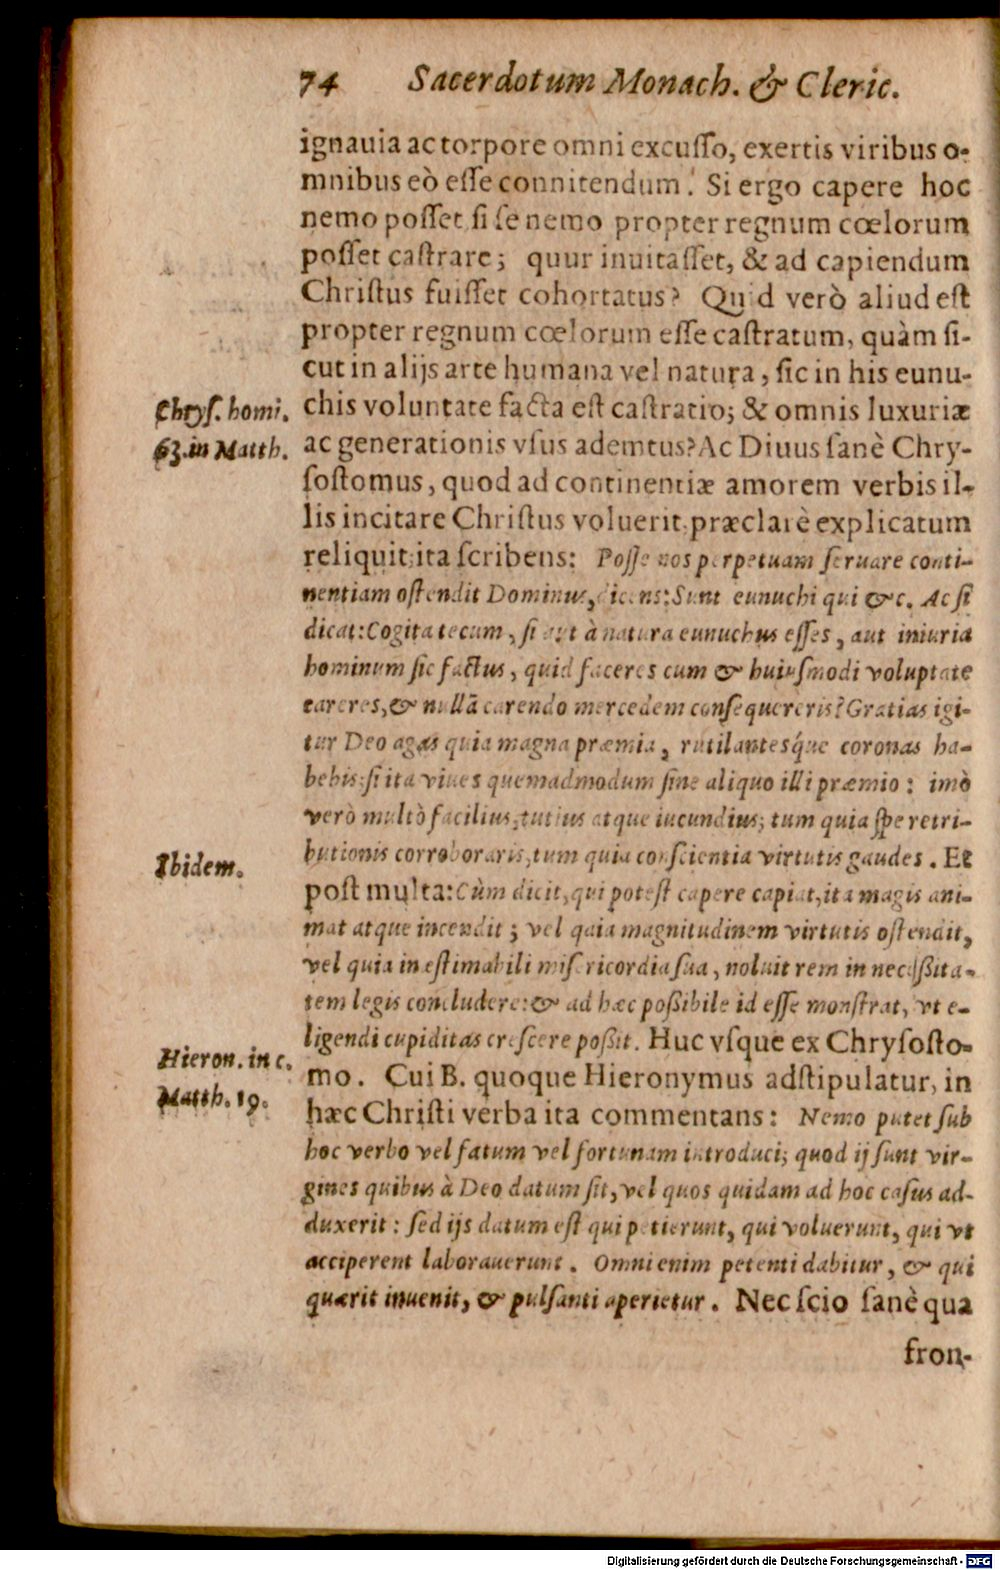 74 Sacerdotum Monach. & Cleric.
ignauia ac torpore omni excuſſo, exertis viribus o-
mnibus eò eſſe connitendum. Si ergo capere hoc
nemo poſſet, ſi ſe nemo propter regnum cœlorum
poſſet caſtrare; quur inuitaſſet, & ad capiendum
Chriſtus fuiſſet cohortatus? Quid verò aliud eſt
propter regnum cœlorum eſſe caſtratum, quàm ſi-
cut in alijs arte humana vel natura, ſic in his eunu-
Chryſ. homi. chis voluntate facta eſt caſtratio; & omnis luxuriæ
63. in Matth. ac generationis vſus ademtus? Ac Diuus ſanè Chry-
ſoſtomus, quod ad continentiæ amorem verbis il-
lis incitare Chriſtus voluerit, præclarè explicatum
reliquit; ita ſcribens: Poſſe nos perpetuam ſeruare conti-
nentiam oſtendit Dominus, dicens: Sunt eunuchi qui &c. Ac ſi
dicat: Cogita tecum, ſi aut à natura eunuchus eſſes, aut iniuria
hominum ſic factus, quid faceres cum & huiuſmodi voluptate
careres, & nullã carendo mercedem conſequereris? Gratias igi-
tur Deo agas quia magna præmia, rutilantesq́ue coronas ha-
bebis; ſi ita viues quemadmodum ſine aliquo illi præmio: imò
verò multò facilius, tutius atque iucundius; tum quia ſpe retri-
butionis corroboraris, tum quia conſcientia virtutis gaudes. Et
Ibidem. poſt multa: Cùm dicit, qui poteſt capere capiat, ita magis ani-
mat atque incendit; vel quia magnitudinem virtutis oſtendit,
vel quia inæſtimabili miſericordia ſua, noluit rem in neceſſita-
tem legis concludere: & ad hæc poßibile id eſſe monſtrat, vt e-
ligendi cupiditas creſcere poßit. Huc vſque ex Chryſoſto-
Hieron. in c. mo. Cui B. quoque Hieronymus adſtipulatur, in
Matth. 19. hæc Chriſti verba ita commentans: Nemo putet ſub
hoc verbo vel fatum vel fortunam introduci; quod ij ſunt vir-
gines quibus à Deo datum ſit, vel quos quidam ad hoc caſus ad-
duxerit: ſed ijs datum eſt qui petierunt, qui voluerunt, qui vt
acciperent laborauerunt. Omni enim petenti dabitur, & qui
quærit inuenit, & pulſanti aperietur. Nec ſcio ſanè qua
fron-
Digitalisierung gefördert durch die Deutsche Forschungsgemeinschaft - DFG